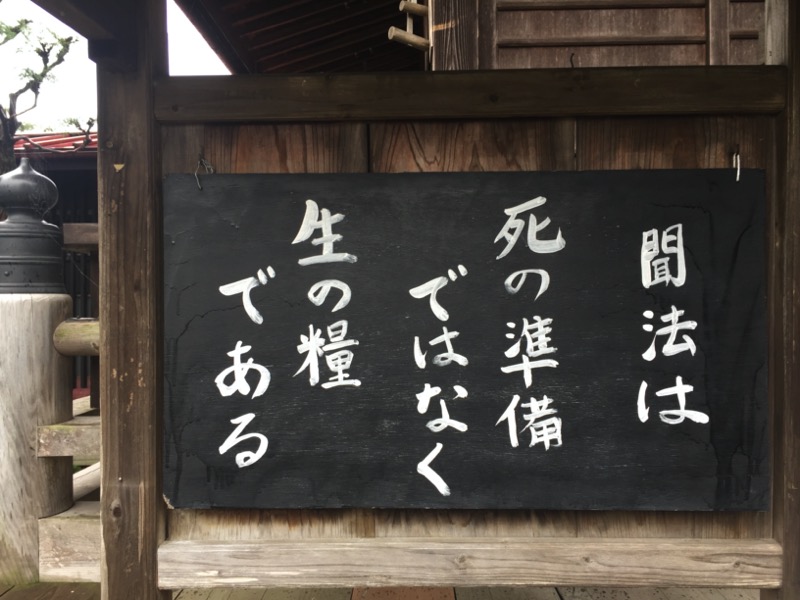 聞法は
死の準備
ではなく
生の糧
である